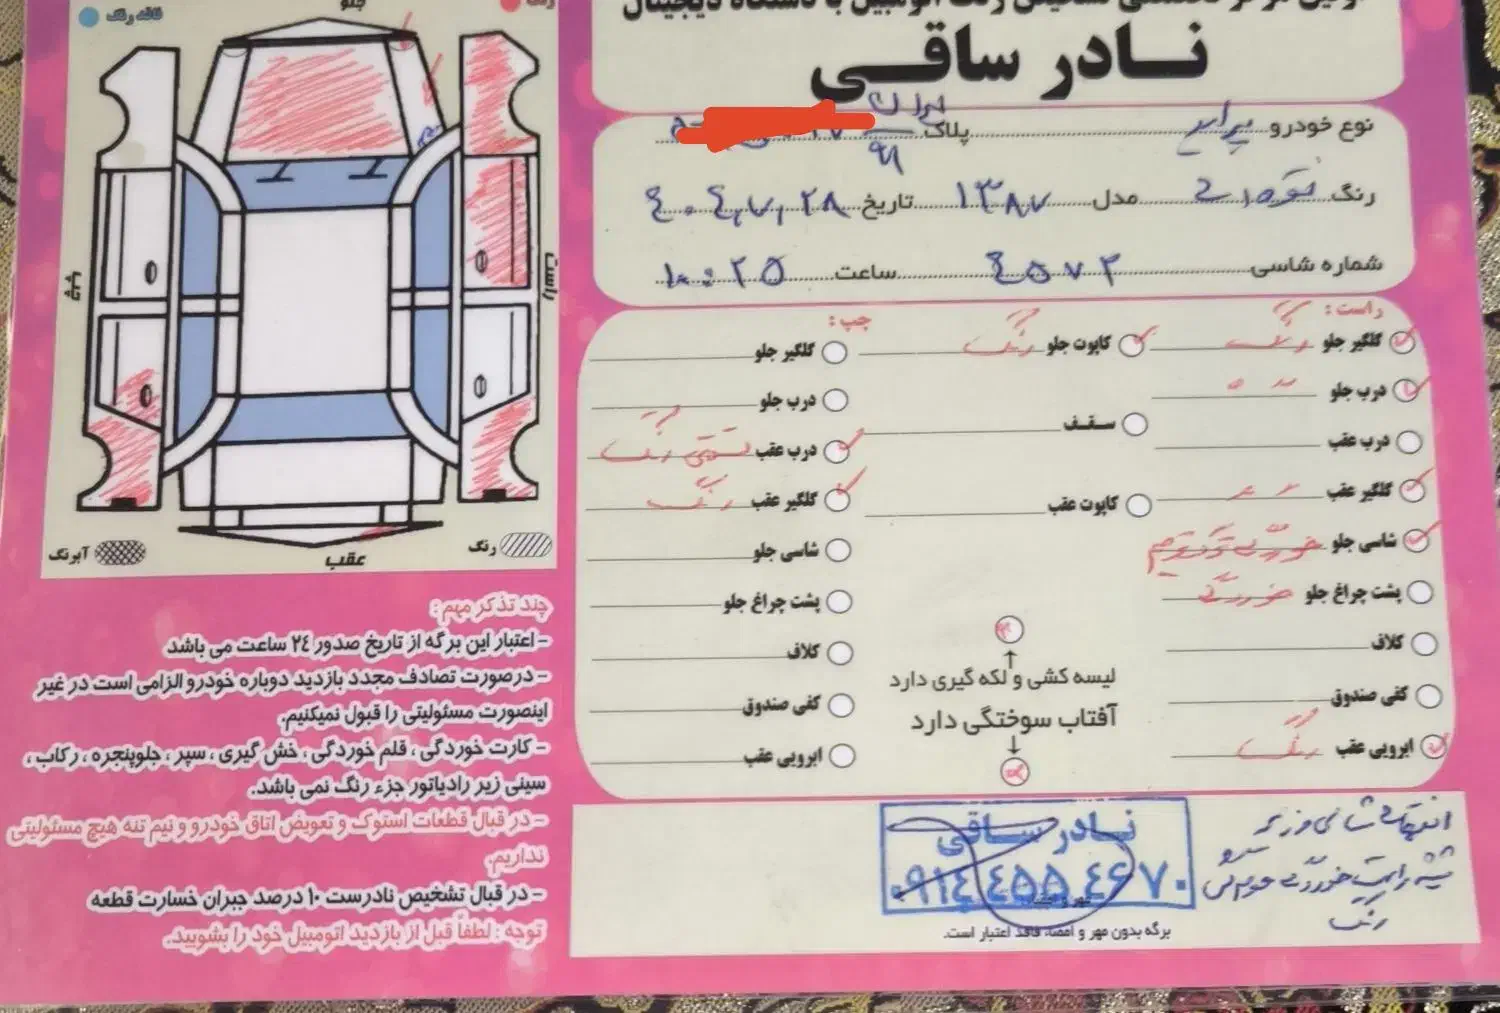 رنگ
فاقد رنگ
جلو
راست
چپ
عقب
رنگ
آبرنگ
اولین مرکز تخصصی تشخیص رنگ اتومبیل با دستگاه دیجیتال
نادر ساقی
نوع خودرو پراید پلاک ایران ۹۱
رنگ نقره ای مدل ۱۳۸۷ تاریخ ۴۰۴,۷,۲۸
شماره شاسی ۴۵۷۲ ساعت ۱۰:۲۵
راست :
گلگیر جلو رنگ
درب جلو
درب عقب
گلگیر عقب
شاسی جلو خوردگی
پشت چراغ جلو خوردگی
کلاف
کفی صندوق
ابرویی عقب رنگ
کاپوت جلو رنگ
سقف
کاپوت عقب
لیسه کشی و لکه گیری دارد
آفتاب سوختگی دارد
چپ :
گلگیر جلو
درب جلو
درب عقب قسمتی رنگ
گلگیر عقب رنگ
شاسی جلو
پشت چراغ جلو
کلاف
کفی صندوق
ابرویی عقب
چند تذکر مهم :
- اعتبار این برگه از تاریخ صدور ۲۴ ساعت می باشد
- درصورت تصادف مجدد بازدید دوباره خودرو الزامی است در غیر
اینصورت مسئولیتی را قبول نمیکنیم.
- کارت خوردگی ، قلم خوردگی ، خش گیری ، سپر ، جلوپنجره ، رکاب ،
سینی زیر رادیاتور جزء رنگ نمی باشد.
- در قبال قطعات استوک و تعویض اتاق خودرو و نیم تنه هیچ مسئولیتی
نداریم.
- در قبال تشخیص نادرست ۱۰ درصد جبران خسارت قطعه
توجه : لطفاً قبل از بازدید اتومبیل خود را بشویید.
انتهای شاسی
راست خوردگی
رنگ
نادر ساقی
۰۹۱۴ ۴۵۵ ۴۶۷۰
مهر و امضاء
برگه بدون مهر و امضاء فاقد اعتبار است.